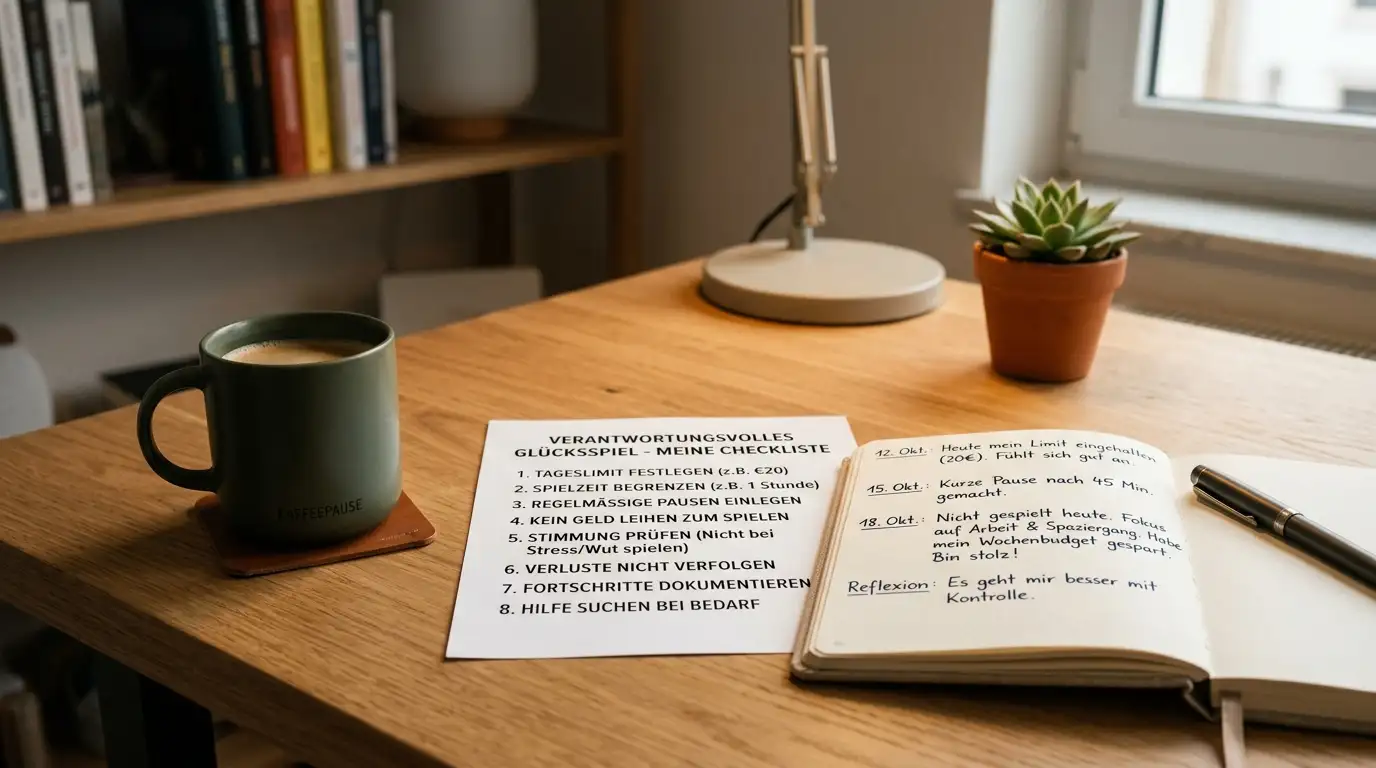 KAFFEEPAUSE
VERANTWORTUNGSVOLLES
GLÜCKSSPIEL - MEINE CHECKLISTE
1. TAGESLIMIT FESTLEGEN (z.B. €20)
2. SPIELZEIT BEGRENZEN (z.B. 1 Stunde)
3. REGELMÄSSIGE PAUSEN EINLEGEN
4. KEIN GELD LEIHEN ZUM SPIELEN
5. STIMMUNG PRÜFEN (Nicht bei
Stress/Wut spielen)
6. VERLUSTE NICHT VERFOLGEN
7. FORTSCHRITTE DOKUMENTIEREN
8. HILFE SUCHEN BEI BEDARF
12. Okt.: Heute mein Limit eingehalten
(20€). Fühlt sich gut an.
15. Okt.: Kurze Pause nach 45 Min.
gemacht.
18. Okt.: Nicht gespielt heute. Fokus
auf Arbeit & Spaziergang. Habe
mein Wochenbudget gespart.
Bin stolz!
Reflexion: Es geht mir besser mit
Kontrolle.